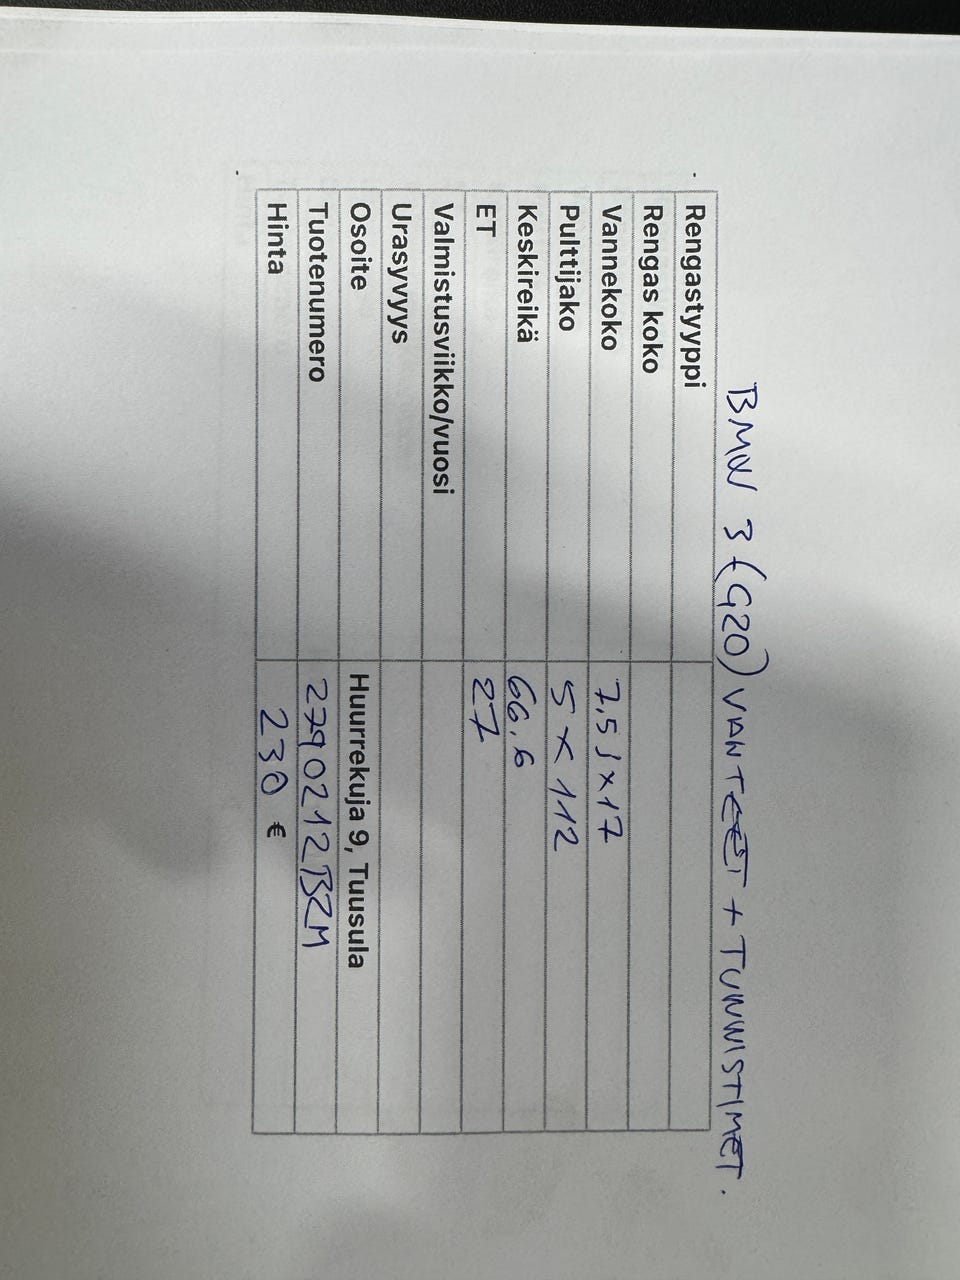 BMW 3 (G20) VANTEET + TUNNISTIMET.
Rengastyyppi
Rengas koko
Vannekoko 7,5J x 17
Pulttijako 5 x 112
Keskireikä 66,6
ET 27
Valmistusviikko/vuosi
Urasyvyys
Osoite Huurrekuja 9, Tuusula
Tuotenumero 2790212BZM
Hinta 230 €